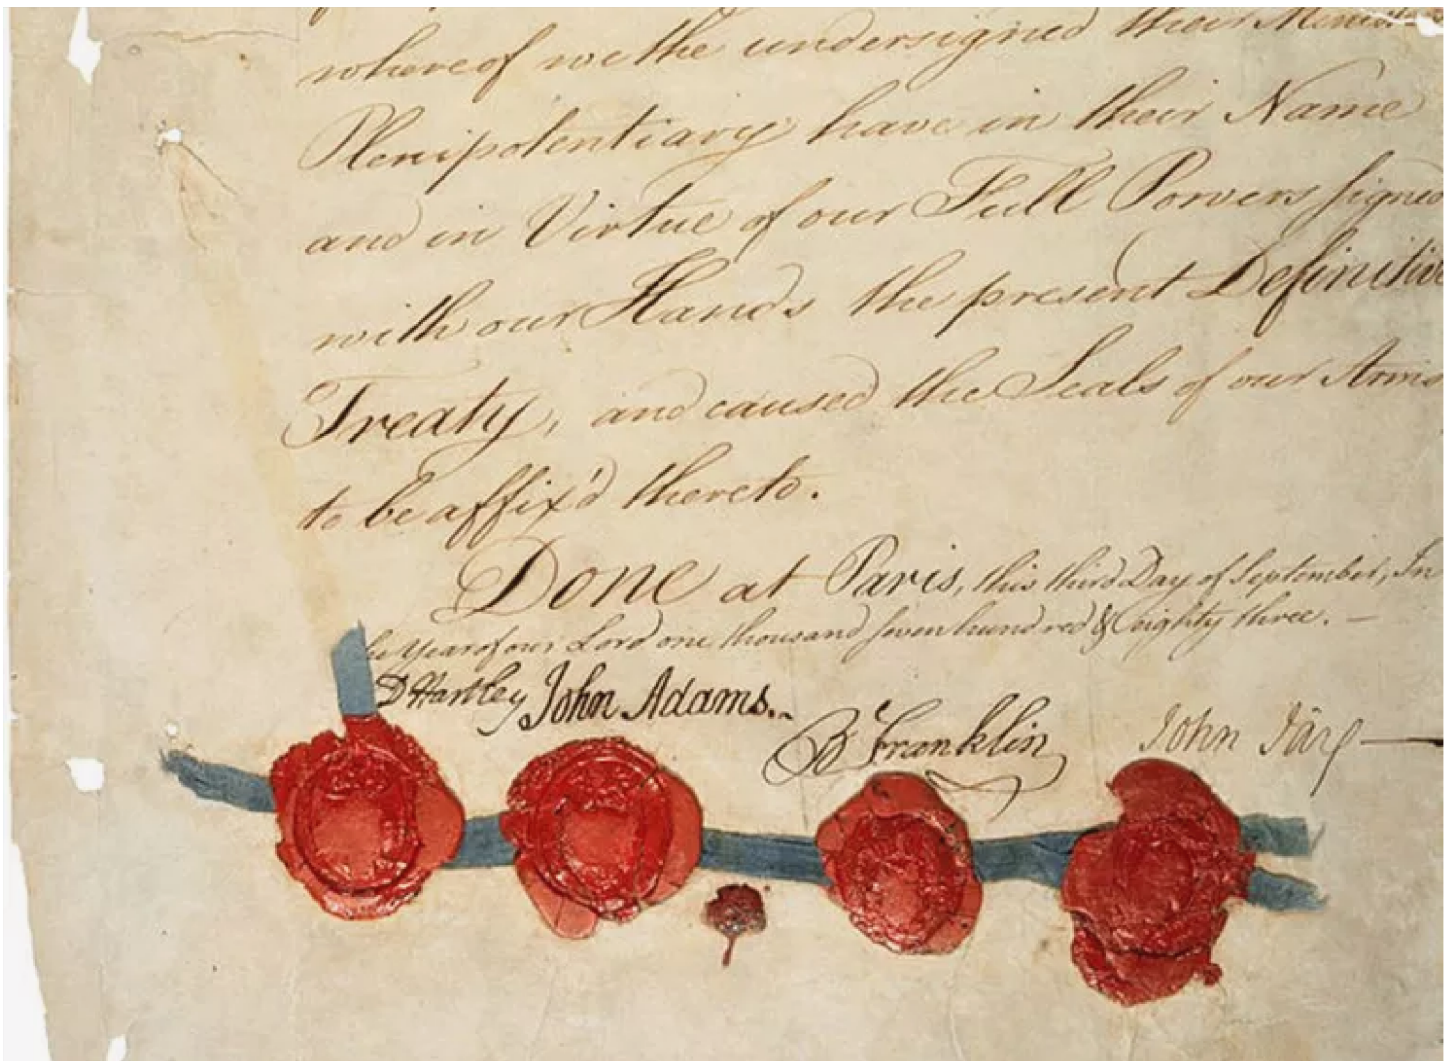 whereof we the undersigned their Minist
Plenipotentiary have in their Name
and in Virtue of our Full Powers signed
with our Hands the present Definitive
Treaty, and caused the Seals of our Arms
to be affix'd thereto.
Done at Paris, this third Day of September, In
he Year of our Lord one thousand seven hundred & eighty three. —
D Hartley John Adams.
B Franklin John Jay